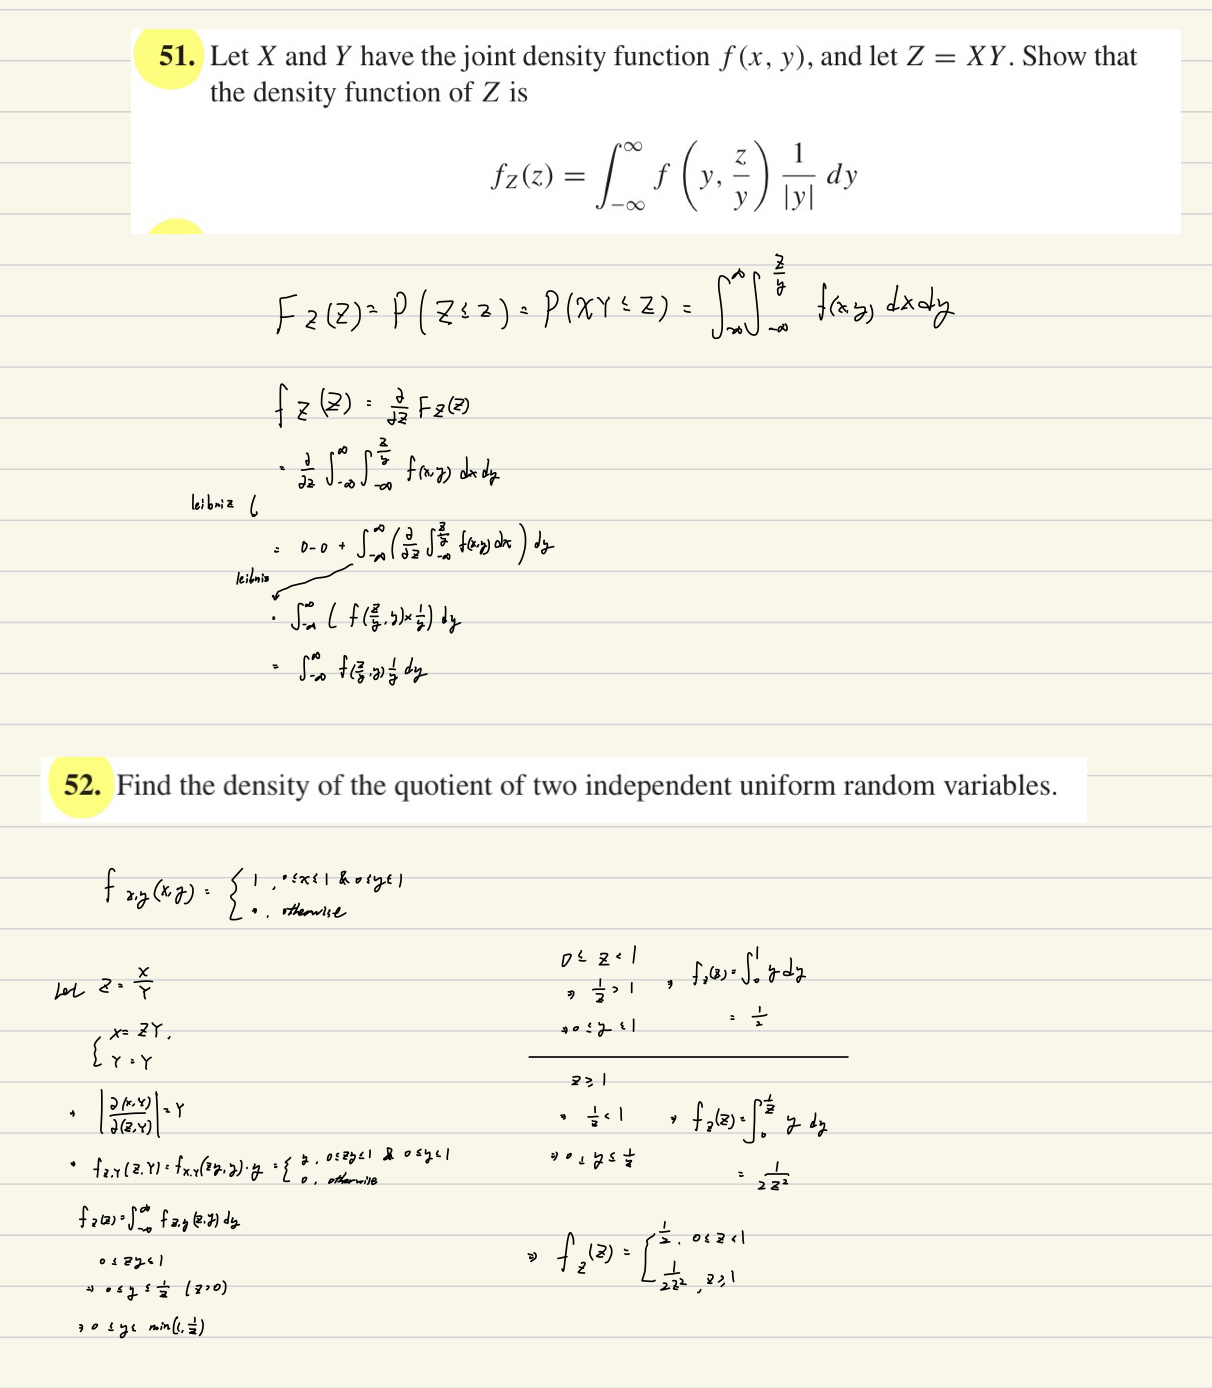 51. Let X and Y have the joint density function f(x, y), and let Z = XY. Show that
the density function of Z is
f_Z(z) = ∫_{-∞}^{∞} f(y, z/y) 1/|y| dy
F_Z(Z) = P(Z ≤ z) = P(XY ≤ Z) = ∫_{-∞}^{∞} ∫_{-∞}^{z/y} f(x,y) dx dy
f_Z(Z) = ∂/∂Z F_Z(Z)
= ∂/∂z ∫_{-∞}^{∞} ∫_{-∞}^{z/y} f(x,y) dx dy
leibniz (
= 0-0 + ∫_{-∞}^{∞} (∂/∂z ∫_{-∞}^{z/y} f(x,y) dx) dy
leibniz
= ∫_{-∞}^{∞} (f(z/y, y) × 1/y) dy
= ∫_{-∞}^{∞} f(z/y, y) 1/y dy
52. Find the density of the quotient of two independent uniform random variables.
f_{x,y}(x,y) = { 1, 0≤x≤1 & 0≤y≤1
0, otherwise
Let Z = X/Y
{ X = ZY,
Y = Y
⇒ |∂(X,Y)/∂(Z,Y)| = Y
⇒ f_{Z,Y}(Z,Y) = f_{X,Y}(zy,y)·y = { y, 0≤zy≤1 & 0≤y≤1
0, otherwise
f_Z(z) = ∫_{-∞}^{∞} f_{z,y}(z,y) dy
0 ≤ zy ≤ 1
⇒ 0 ≤ y ≤ 1/z (z>0)
⇒ 0 ≤ y ≤ min(1, 1/z)
0 ≤ z < 1
⇒ 1/z > 1
⇒ 0 ≤ y ≤ 1
⇒ f_Z(z) = ∫_0^1 y dy
= 1/2
z ≥ 1
⇒ 1/z < 1
⇒ 0 ≤ y ≤ 1/z
⇒ f_Z(z) = ∫_0^{1/z} y dy
= 1/2z²
⇒ f_Z(z) = [ 1/2, 0≤z<1
1/2z², z≥1